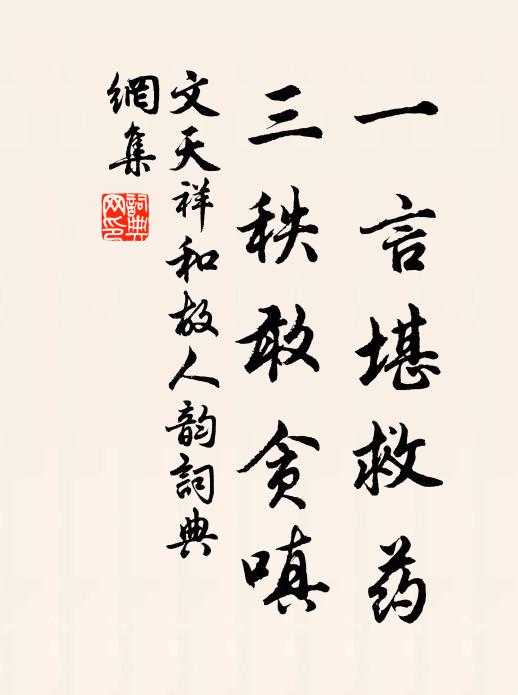 一言堪救药
三秩敢贪嗔
文天祥和故人韵詞典
網集
詞典
网印